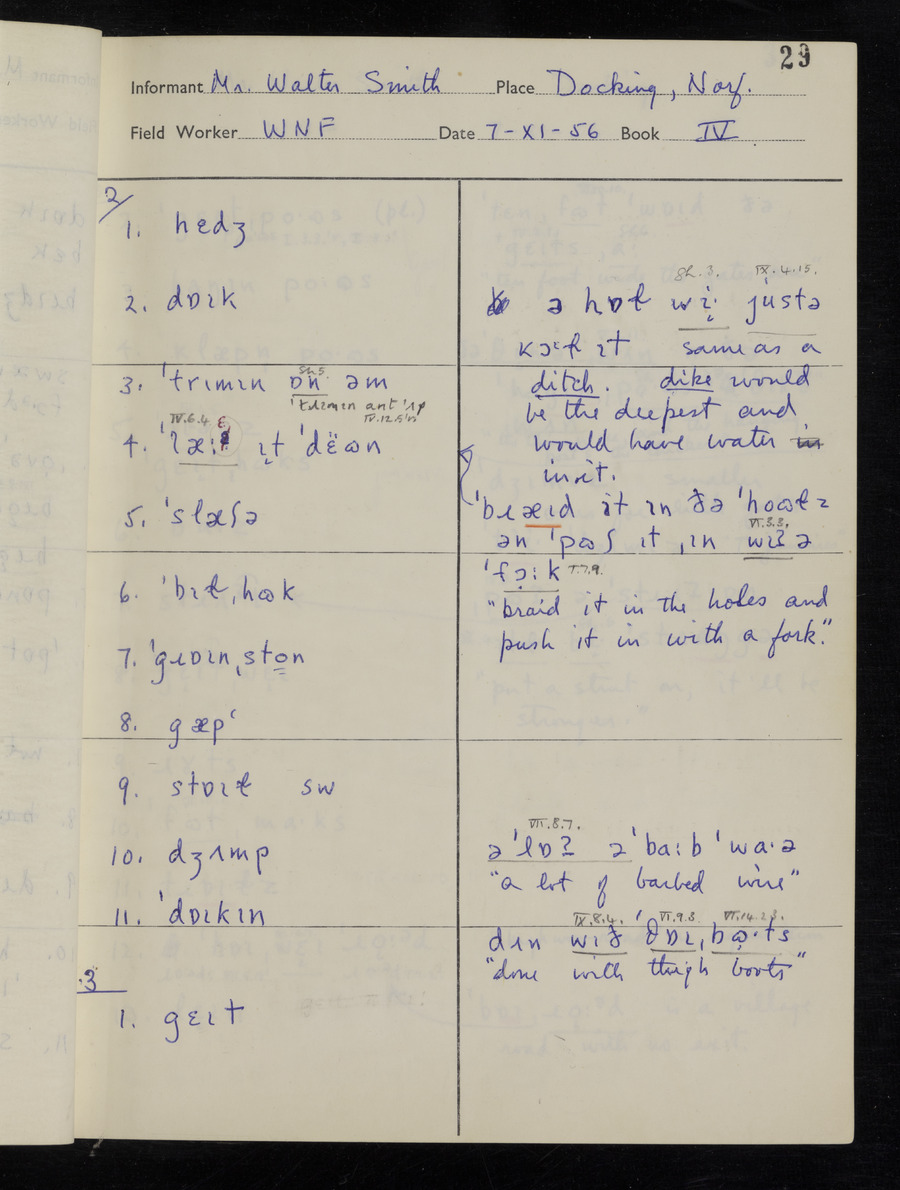 29
Informant Mr. Walter Smith Place Docking, Norf.
Field Worker WNF Date 7-XI-56 Book IV
2/
1. hedʒ
2. dɒɪk
3. ˈtrɪmɪn ɒn əm
Sh 5
IV.6.4.
IV.12.5
4. ɪt ˈdëɷn
5. ˈslæʃə
6. ˈbɪt ˌhɷk
7. ˈgɪɒɪn ˌston
8. gæpʻ
9. stɒɪt sw
10. dʒʌmp
11. ˈdɒɪkɪn
3
1. gɛɪt
8h.3. IX.4.15.
ə hɒt wi justə
kɔːt ɪt same as a
ditch. dike would
be the deepest and
would have water
in it.
ˈbɹæɪd ɪt ɪn ðə ˈhoɷtz
VI.3.3.
ən ˈpɷʃ ɪt ˌɪn wɪʔ ə
ˈfɔːk I.7.9.
"braid it in the holes and
push it in with a fork."
VII.8.7.
ə ˈlɒʔ ə ˈbaːb ˈwaˑə
"a lot of barbed wire"
IX.8.4. VI.9.3. VI.14.23.
dʌn wɪð ˈθɒɪ ˌbɷˑts
"done with thigh boots"